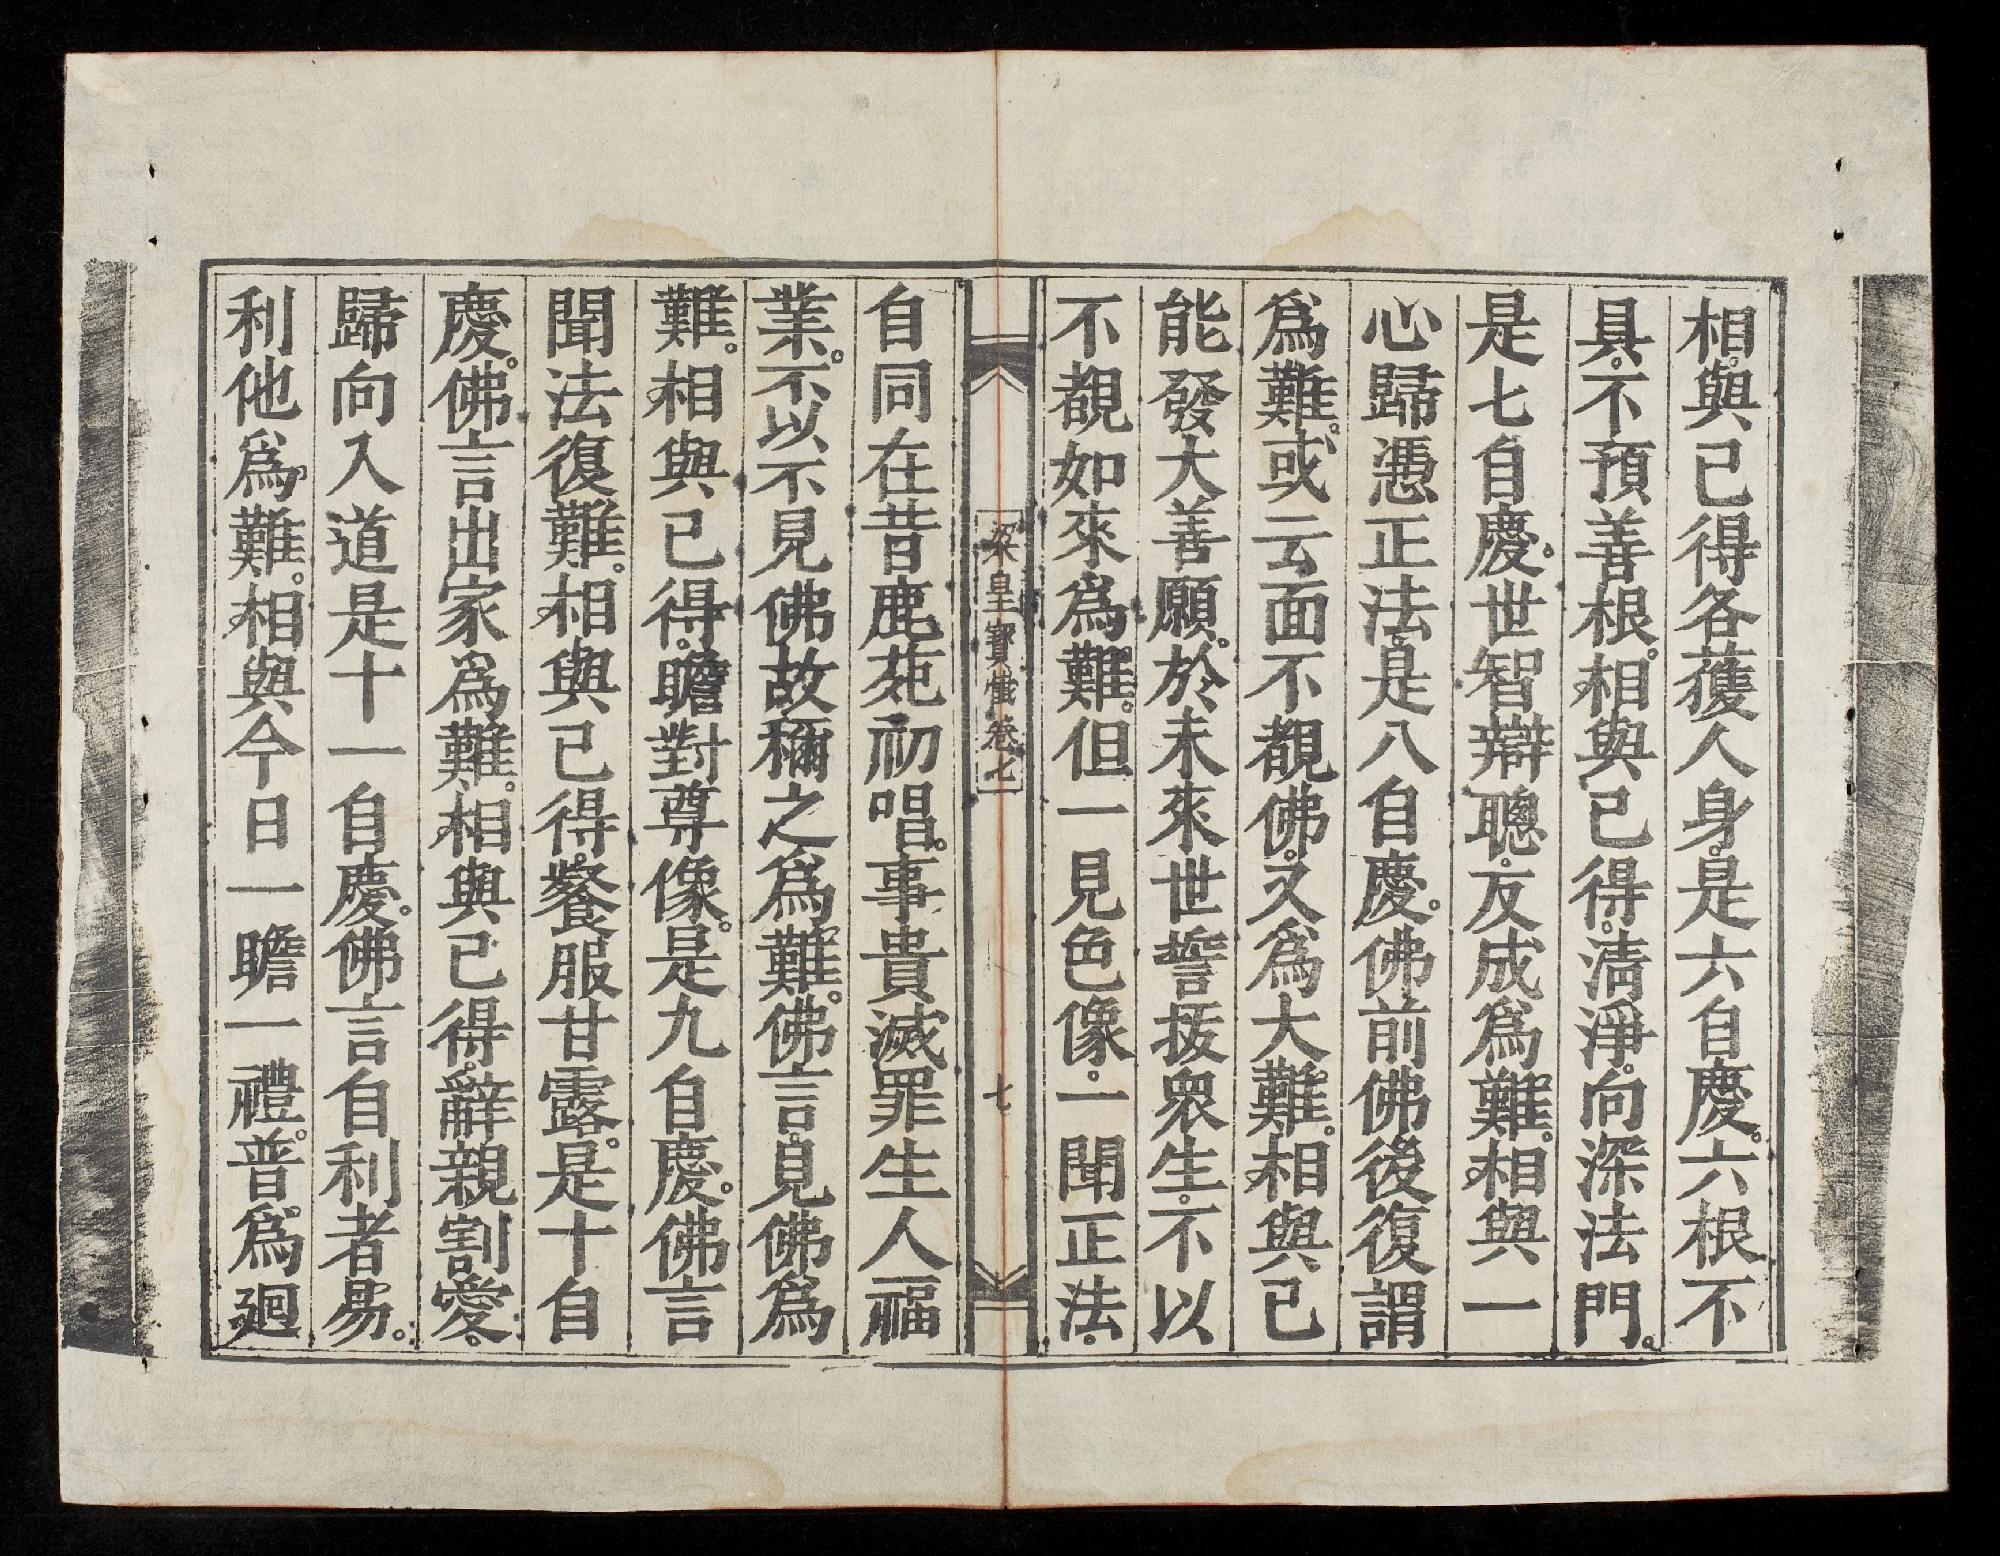 相。與已得各獲人身。是六自慶。六根不
具。不預善根。相與已得。清淨。向深法門。
是七自慶。世智辯聰。友成爲難。相與一
心歸憑正法。是八自慶。佛前佛後復謂
爲難。或云面不覩佛。又爲大難。相與已
能發大善願。於未來世誓拔衆生。不以
不覩如來爲難。但一見色像。一聞正法。
梁皇寶懺卷七
七
自同在昔鹿苑初唱。事貴滅罪生人福
業。不以不見佛故稱之爲難。佛言。見佛爲
難。相與已得。瞻對尊像。是九自慶。佛言
聞法復難。相與已得。餐服甘露。是十自
慶。佛言出家爲難。相與已得。辭親割愛。
歸向入道是十一自慶。佛言自利者易。
利他爲難。相與今日一瞻一禮。普爲迴